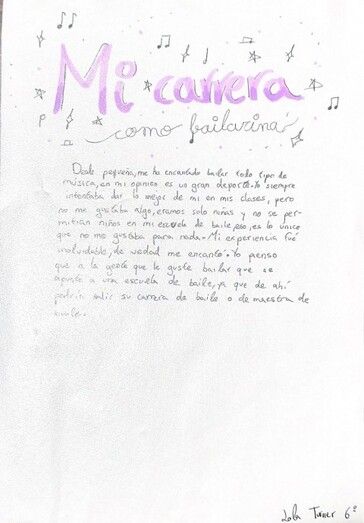 Mi carrera
como bailarina
Desde pequeña, me ha encantado bailar todo tipo de
música, en mi opinión es un gran deporte. Yo siempre
intentaba dar lo mejor de mi en mis clases, pero
no me gustaba algo, eramos solo niñas y no se per-
mitían niños en mi escuela de baile, eso, es lo único
que no me gustaba para nada. Mi experiencia fué
inolvidable, de verdad me encantó. Yo pienso
que a la gente que le guste bailar que se
apunte a una escuela de baile, ya que de ahí
podría salir su carrera de baile o de maestra de
baile.
Lola Turner 6º